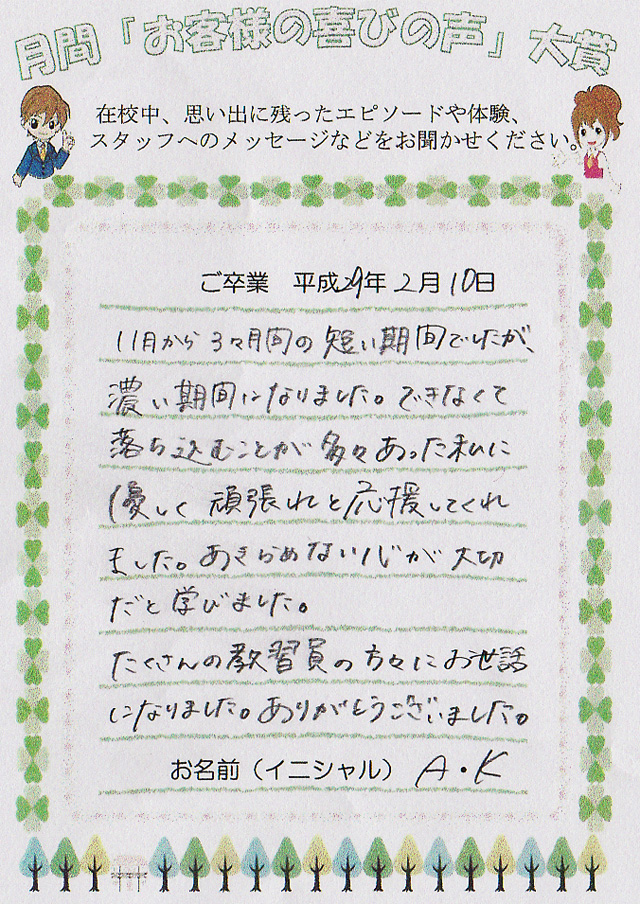 月間「お客様の喜びの声」大賞
在校中、思い出に残ったエピソードや体験、
スタッフへのメッセージなどをお聞かせください。
ご卒業 平成29年2月10日
11月から3ヶ月間の短い期間でしたが、
濃い期間になりました。できなくて
落ち込むことが多々あった私に
優しく頑張れと応援してくれ
ました。あきらめない心が大切
だと学びました。
たくさんの教習員の方々にお世話
になりました。ありがとうございました。
お名前(イニシャル) A・K